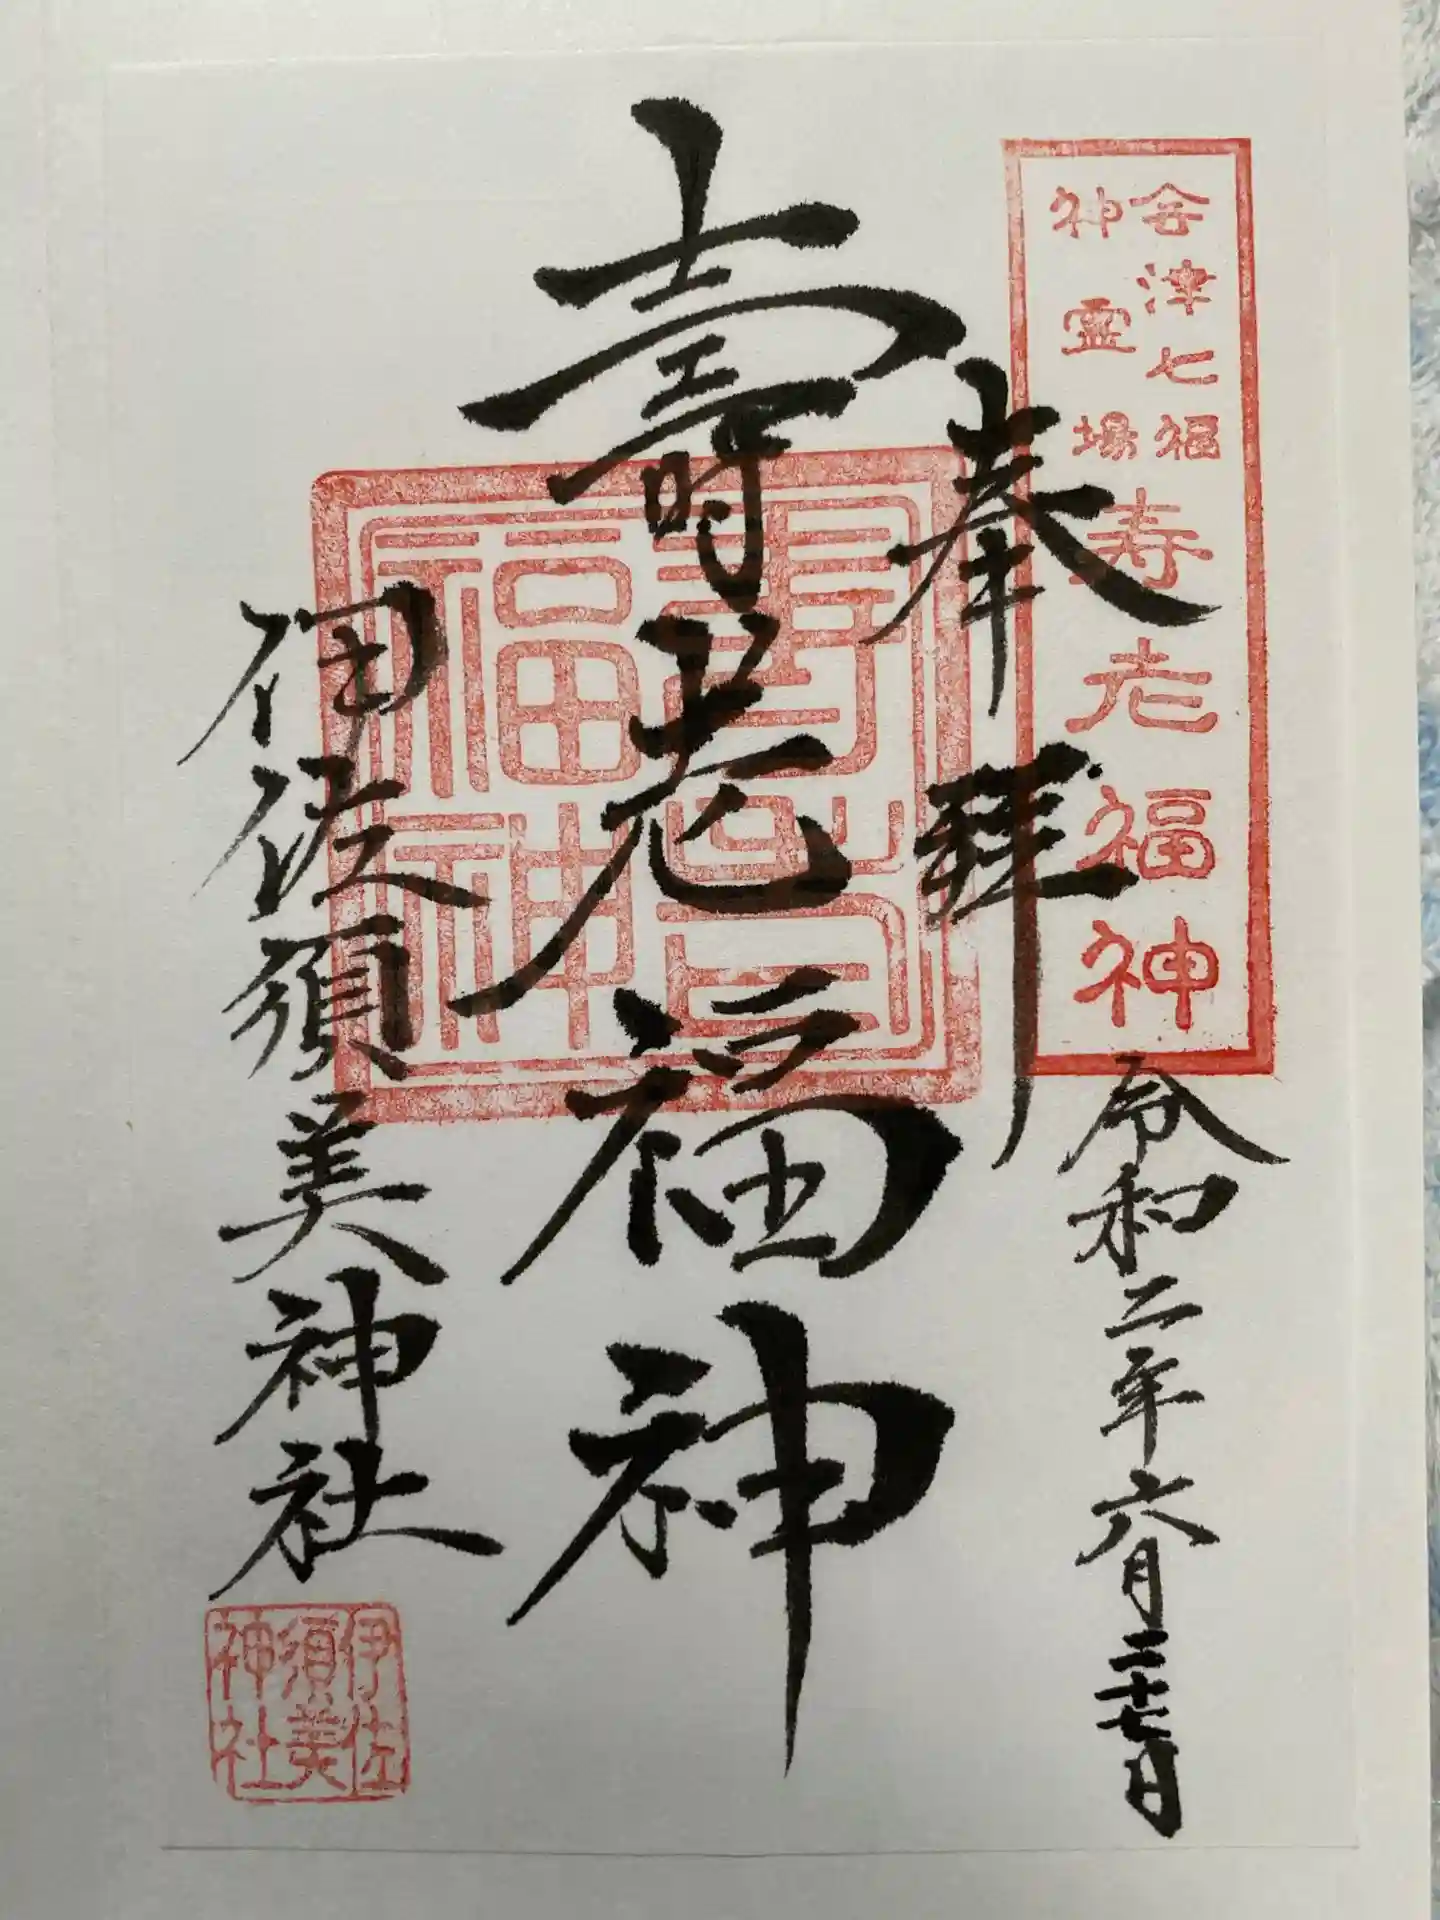 会津七福
神霊場
寿老福神
奉拝
令和二年六月二十七日
壽老福神
壽老
福神
伊佐須美神社
伊佐
須美
神社